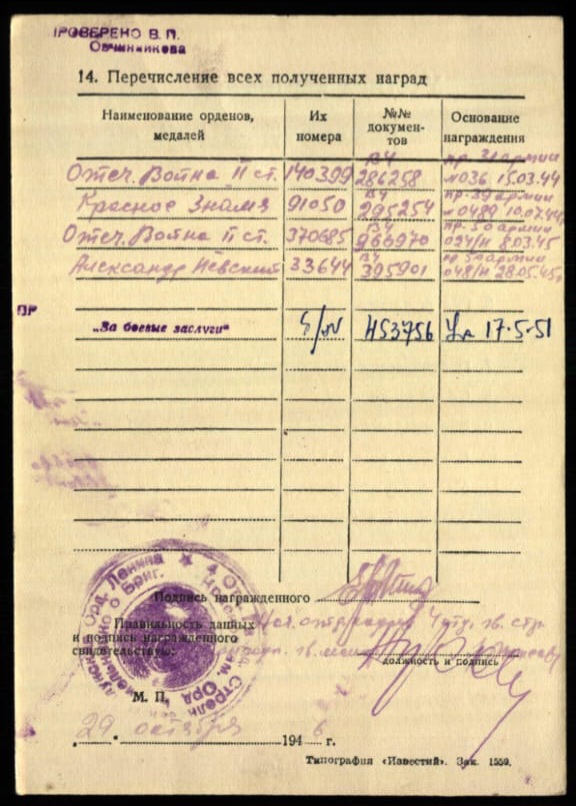 ПРОВЕРЕНО В.П.
Овчинникова
14. Перечисление всех полученных наград
Наименование орденов, медалей
Их номера
№№ документов
Основание награждения
Отеч. Война II ст. 140399 В4 286258 пр. 31 армии №036 15.03.44
Красное Знамя 91050 В4 295254 пр. 39 армии №0489 10.07.44
Отеч. Война II ст. 370685 В4 960970 пр. 50 армии 024/н 8.03.45
Александр Невский 33644 В4 395901 пр 50 армии 048/н 28.05.45
ПР
„За боевые заслуги“ б/№ Н53756 Ук 17-5-51
Подпись награжденного
Правильность данных
и подпись награжденного
свидетельствую:
должность и подпись
М. П.
29 октября 1946 г.
Типография «Известий». Зак. 1559.